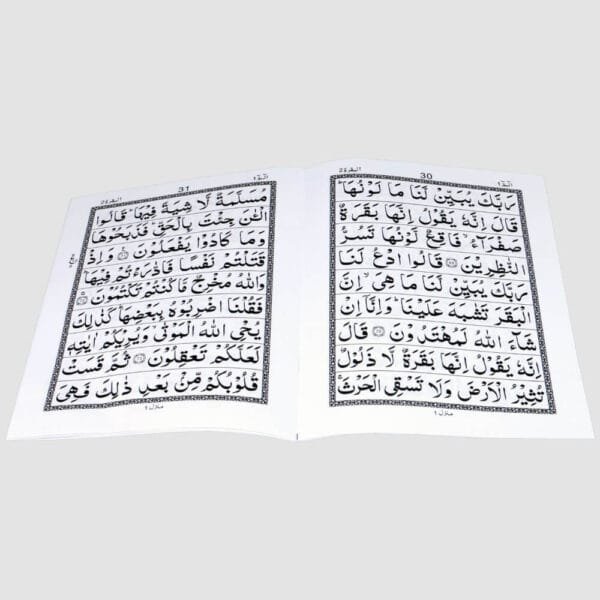 البقرة ٢
30
الٓمّٓ ١
رَبَّكَ يُبَيِّنْ لَّنَا مَا لَوْنُهَاؕ
قَالَ اِنَّهٗ يَقُوْلُ اِنَّهَا بَقَرَةٌ
صَفْرَآءُۙ فَاقِعٌ لَّوْنُهَا تَسُرُّ
النّٰظِرِيْنَ ﴿٦٩﴾ قَالُوا ادْعُ لَنَا
رَبَّكَ يُبَيِّنْ لَّنَا مَا هِيَۙ اِنَّ
الْبَقَرَ تَشٰبَهَ عَلَيْنَاؕ وَاِنَّاۤ اِنْ
شَآءَ اللّٰهُ لَمُهْتَدُوْنَ ﴿٧٠﴾ قَالَ
اِنَّهٗ يَقُوْلُ اِنَّهَا بَقَرَةٌ لَّا ذَلُوْلٌ
تُثِيْرُ الْاَرْضَ وَلَا تَسْقِى الْحَرْثَۚ
منزل ١
البقرة ٢
31
الٓمّٓ ١
مُسَلَّمَةٌ لَّا شِيَةَ فِيْهَاؕ قَالُوا
الْـٰٔنَ جِئْتَ بِالْحَقِّؕ فَذَبَحُوْهَا
وَمَا كَادُوْا يَفْعَلُوْنَ ﴿٧١﴾ وَاِذْ
قَتَلْتُمْ نَفْسًا فَادّٰرَءْتُمْ فِيْهَاؕ
وَاللّٰهُ مُخْرِجٌ مَّا كُنْتُمْ تَكْتُمُوْنَ ﴿٧٢﴾
فَقُلْنَا اضْرِبُوْهُ بِبَعْضِهَاؕ كَذٰلِكَ
يُحْىِ اللّٰهُ الْمَوْتٰى وَيُرِيْكُمْ اٰيٰتِهٖ
لَعَلَّكُمْ تَعْقِلُوْنَ ﴿٧٣﴾ ثُمَّ قَسَتْ
قُلُوْبُكُمْ مِّنْۢ بَعْدِ ذٰلِكَ فَهِىَ
منزل ١